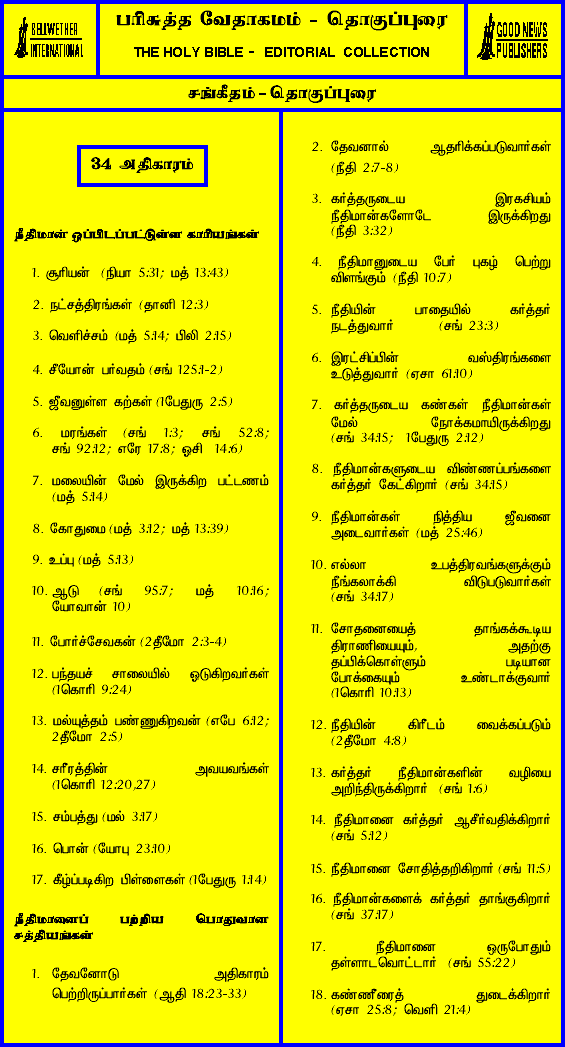 BELLWETHER
INTERNATIONAL
பரிசுத்த வேதாகமம் - தொகுப்புரை
THE HOLY BIBLE - EDITORIAL COLLECTION
GOOD NEWS
PUBLISHERS
சங்கீதம் - தொகுப்புரை
34 அதிகாரம்
நீதிமான் ஒப்பிடப்பட்டுள்ள காரியங்கள்
1. சூரியன் (நியா 5:31; மத் 13:43)
2. நட்சத்திரங்கள் (தானி 12:3)
3. வெளிச்சம் (மத் 5:14; பிலி 2:15)
4. சீயோன் பர்வதம் (சங் 125:1-2)
5. ஜீவனுள்ள கற்கள் (1பேதுரு 2:5)
6. மரங்கள் (சங் 1:3; சங் 52:8;
சங் 92:12; எரே 17:8; ஓசி 14:6)
7. மலையின் மேல் இருக்கிற பட்டணம்
(மத் 5:14)
8. கோதுமை (மத் 3:12; மத் 13:39)
9. உப்பு (மத் 5:13)
10. ஆடு (சங் 95:7; மத் 10:16;
யோவான் 10)
11. போர்ச்சேவகன் (2தீமோ 2:3-4)
12. பந்தயச் சாலையில் ஓடுகிறவர்கள்
(1கொரி 9:24)
13. மல்யுத்தம் பண்ணுகிறவன் (எபே 6:12;
2தீமோ 2:5)
14. சரீரத்தின் அவயவங்கள்
(1கொரி 12:20,27)
15. சம்பத்து (மல் 3:17)
16. பொன் (யோபு 23:10)
17. கீழ்ப்படிகிற பிள்ளைகள் (1பேதுரு 1:14)
நீதிமானைப் பற்றிய பொதுவான
சத்தியங்கள்
1. தேவனோடு அதிகாரம்
பெற்றிருப்பார்கள் (ஆதி 18:23-33)
2. தேவனால் ஆதரிக்கப்படுவார்கள்
(நீதி 2:7-8)
3. கர்த்தருடைய இரகசியம்
நீதிமான்களோடே இருக்கிறது
(நீதி 3:32)
4. நீதிமானுடைய பேர் புகழ் பெற்று
விளங்கும் (நீதி 10:7)
5. நீதியின் பாதையில் கர்த்தர்
நடத்துவார் (சங் 23:3)
6. இரட்சிப்பின் வஸ்திரங்களை
உடுத்துவார் (ஏசா 61:10)
7. கர்த்தருடைய கண்கள் நீதிமான்கள்
மேல் நோக்கமாயிருக்கிறது
(சங் 34:15; 1பேதுரு 2:12)
8. நீதிமான்களுடைய விண்ணப்பங்களை
கர்த்தர் கேட்கிறார் (சங் 34:15)
9. நீதிமான்கள் நித்திய ஜீவனை
அடைவார்கள் (மத் 25:46)
10. எல்லா உபத்திரவங்களுக்கும்
நீங்கலாக்கி விடுபடுவார்கள்
(சங் 34:17)
11. சோதனையைத் தாங்கக்கூடிய
திராணியையும், அதற்கு
தப்பிக்கொள்ளும் படியான
போக்கையும் உண்டாக்குவார்
(1கொரி 10:13)
12. நீதியின் கிரீடம் வைக்கப்படும்
(2தீமோ 4:8)
13. கர்த்தர் நீதிமான்களின் வழியை
அறிந்திருக்கிறார் (சங் 1:6)
14. நீதிமானை கர்த்தர் ஆசீர்வதிக்கிறார்
(சங் 5:12)
15. நீதிமானை சோதித்தறிகிறார் (சங் 11:5)
16. நீதிமான்களைக் கர்த்தர் தாங்குகிறார்
(சங் 37:17)
17. நீதிமானை ஒருபோதும்
தள்ளாடவொட்டார் (சங் 55:22)
18. கண்ணீரைத் துடைக்கிறார்
(ஏசா 25:8; வெளி 21:4)